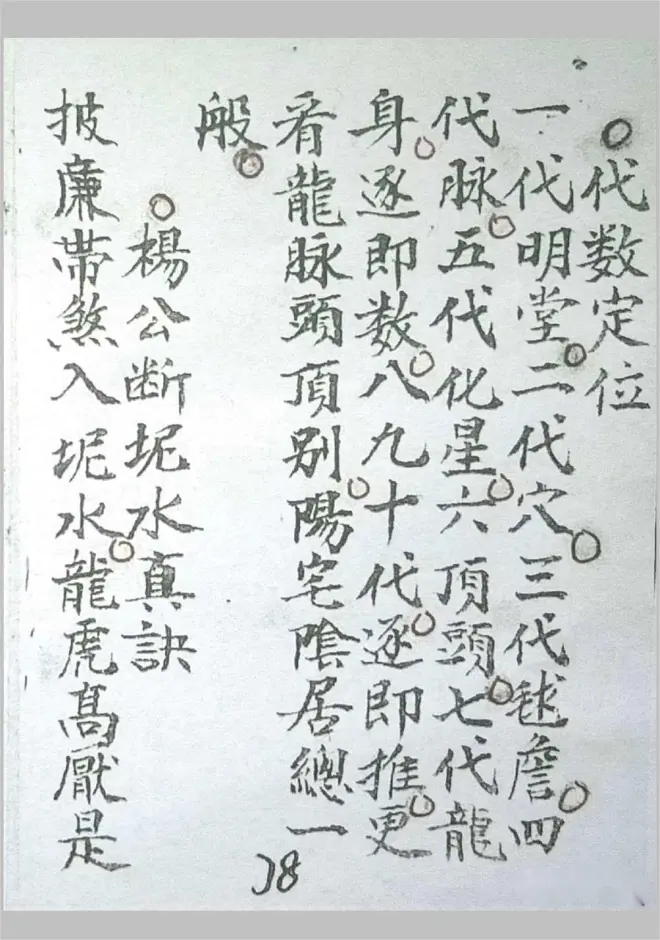 ○代数定位
一代明堂○二代穴○三代毬詹○四
代脉○五代化星○六頂頭○七代龍
身○逐即数○八九十代○逐即推○更
看龍脉頭頂別○陽宅陰居總一
般○
○楊公断坭水真訣
披廉帶煞入坭水○龍虎高厭是
18